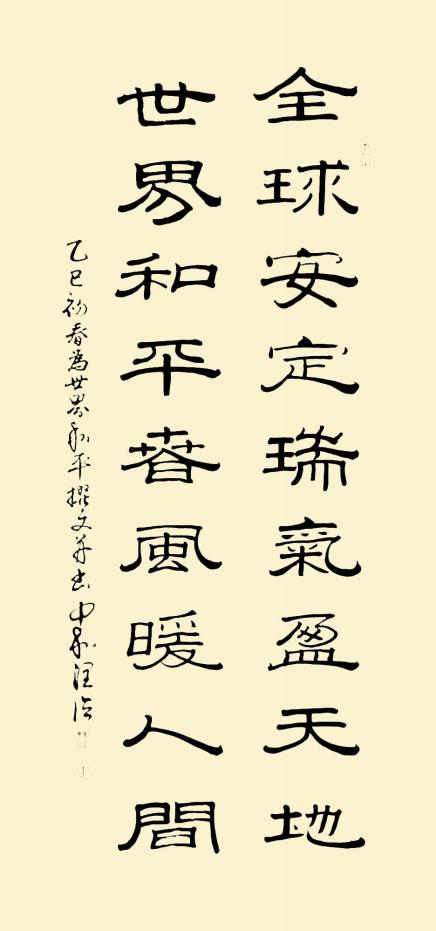 全球安定瑞氣盈天地
世界和平春風暖人間
乙巳初春為世界和平撰文并书